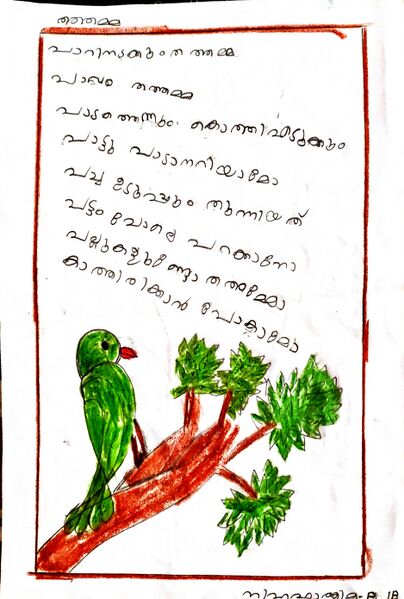 തത്തമ്മ
പാറിനടക്കും തത്തമ്മ
പാവം തത്തമ്മ
പാടത്തെന്നും കൊത്തിപ്പെടുക്കും
പാട്ടു പാടാനറിയാമോ
പച്ച ഉടുപ്പും തുന്നിയത്
പട്ടം പോലെ പറക്കാനോ
പല്ലുകളുണ്ടോ തത്തമ്മേ
കാത്തിരിക്കാൻ പോകാമോ